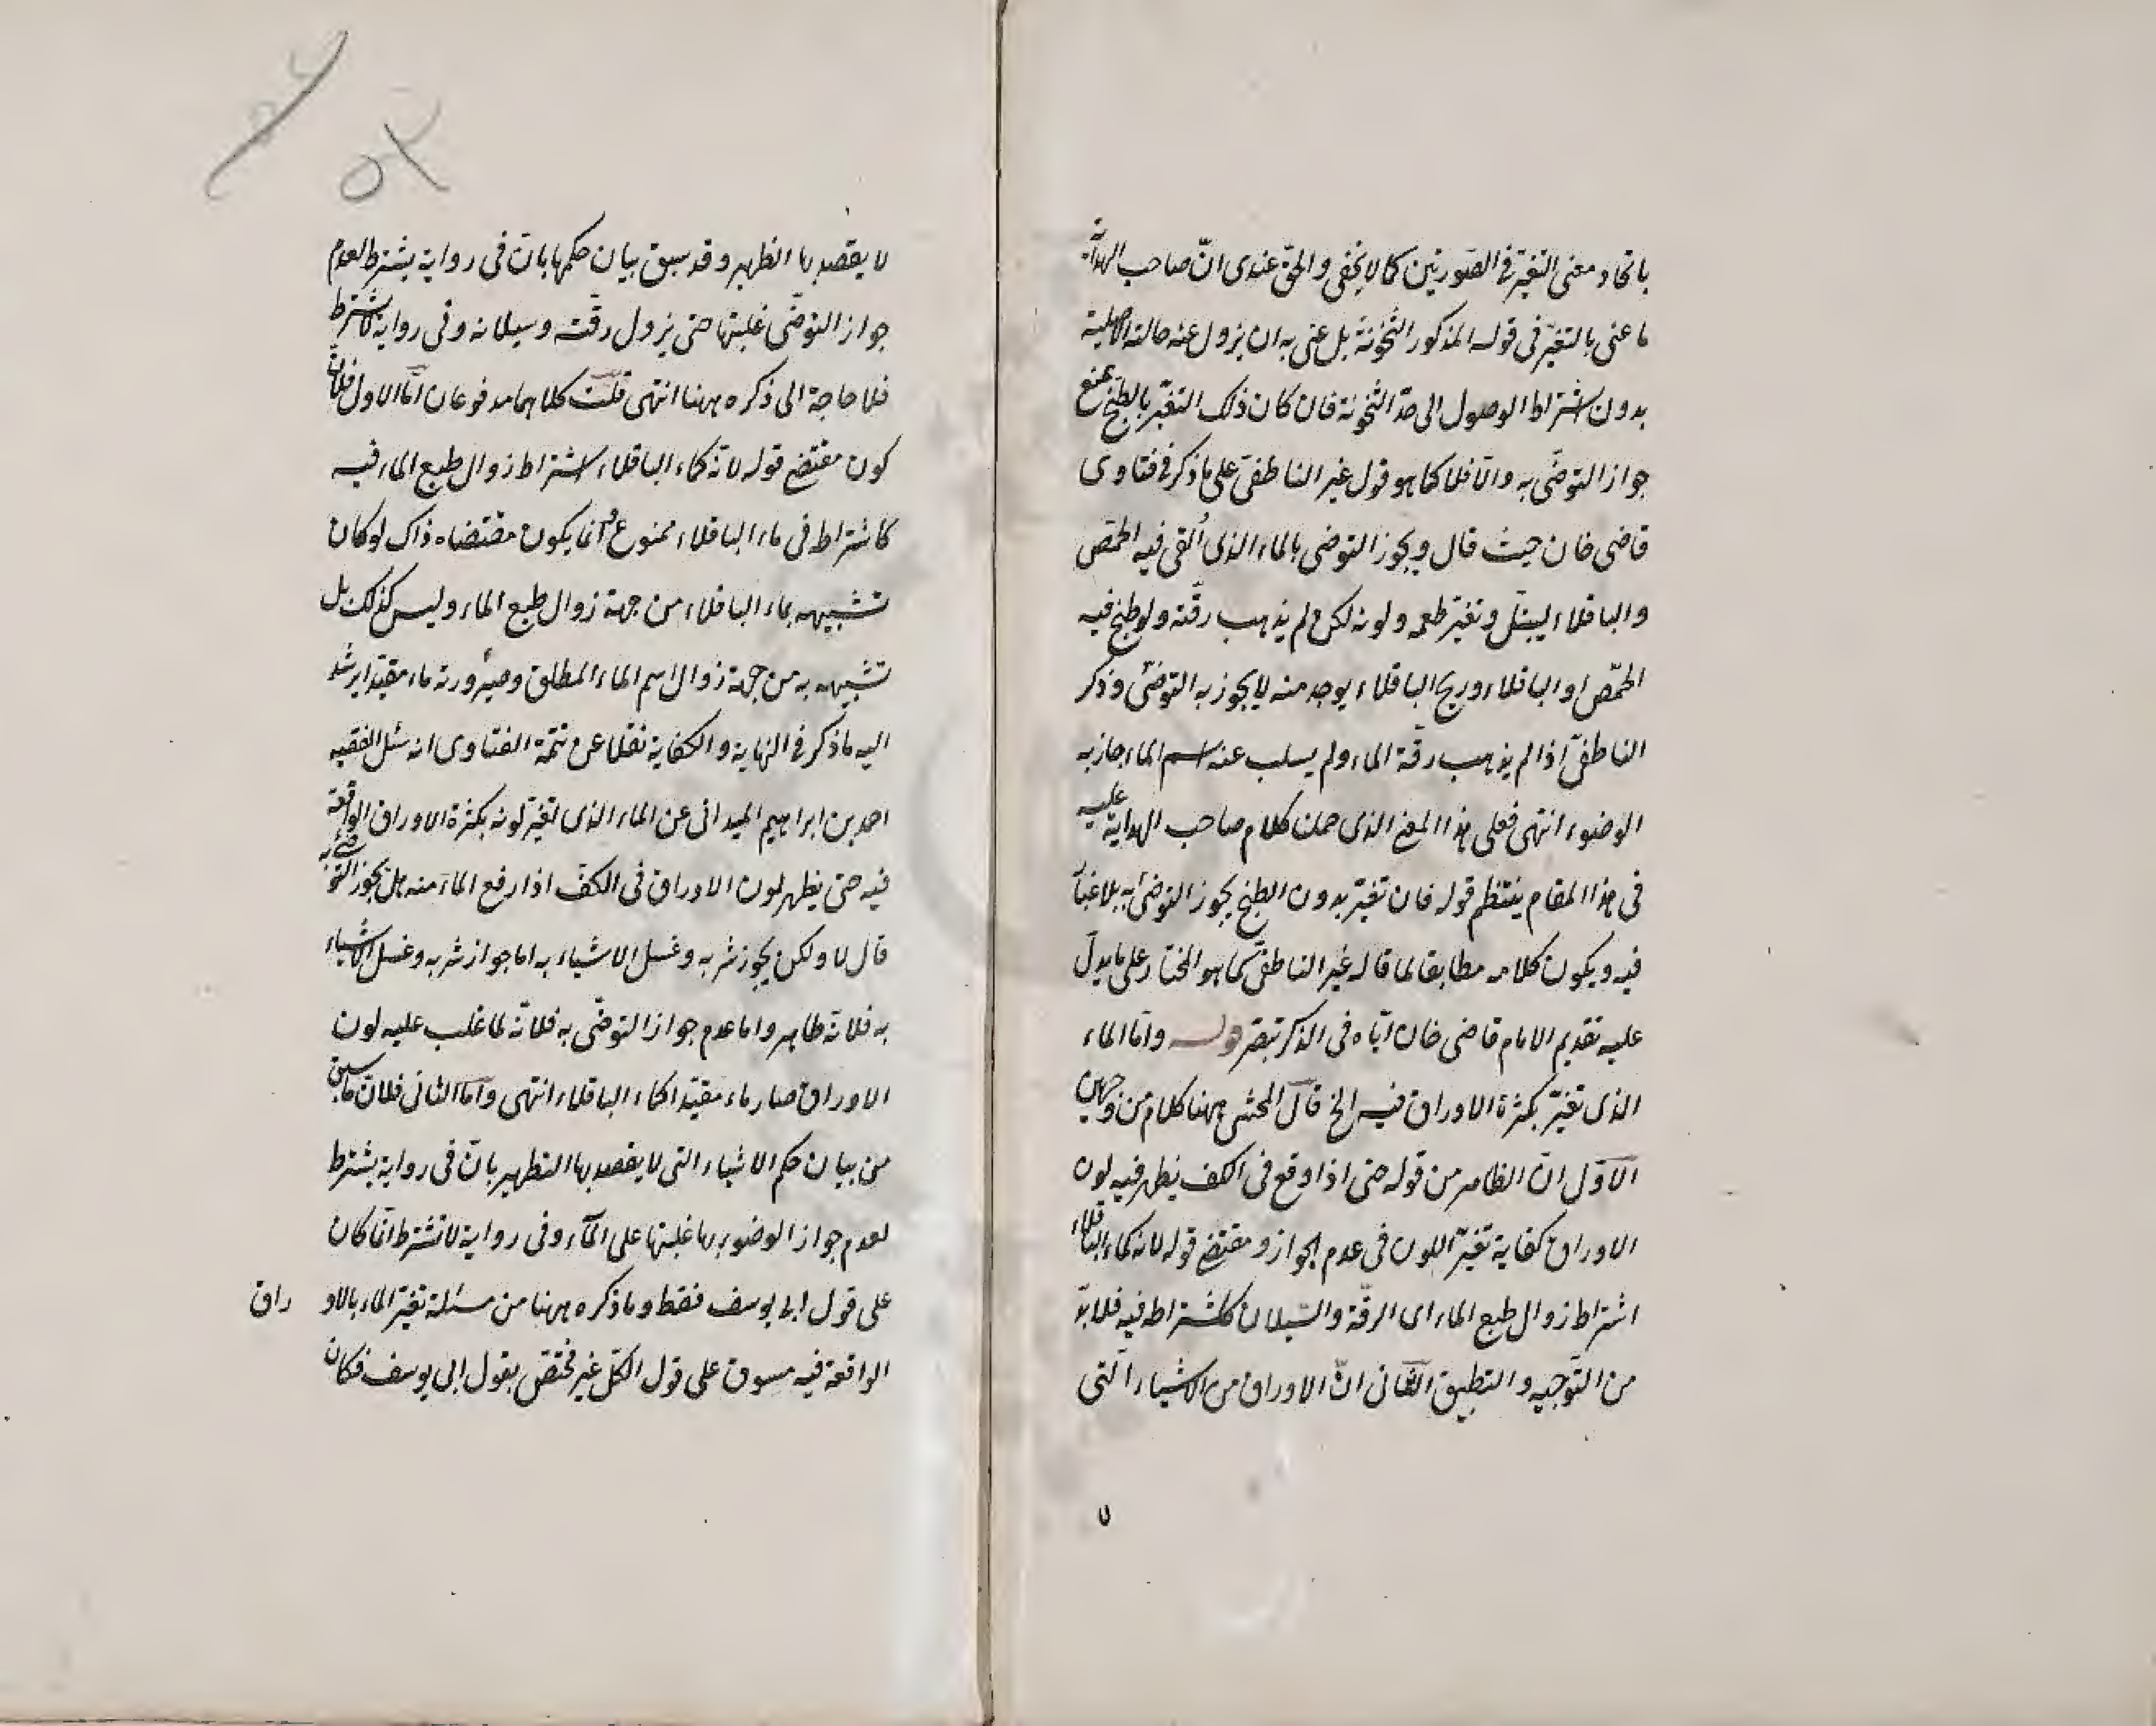 باتحاد معنى التغيّر في الصورتين كما لا يخفى والحق عندى انّ صاحب الهداية
ما عنى بالتغيّر في قوله المذكور الثخونة بل عنى به ان يزول عنه حالته الاصلية
بدون اشتراط الوصول الى حدّ الثخونة فان كان ذلك التغيّر بالطبخ يمنع
جواز التوضّى به والّا فلا كما هو قول غير الناطفىّ على ما ذكر في فتاوى
قاضى خان حيث قال ويجوز التوضى بالماء الذى اُلقى فيه الحمّص
والباقلاء ليبتلّ وتغيّر طعمه ولونه لكن لم يذهب رقّته ولو طبخ فيه
الحمّص او الباقلاء وريح الباقلاء يوجد منه لا يجوز به التوضّى وذكر
الناطفىّ اذا لم يذهب رقّة الماء ولم يسلب عنه اسم الماء جاز به
الوضوء انتهى فعلى هذا المعنى الذى حملت كلام صاحب الهداية عليه
في هذا المقام ينتظم قوله فان تغيّر بدون الطبخ يجوز التوضى به بلا غبار
فيه ويكون كلامه مطابقا لما قاله غير الناطفىّ كما هو المختار على ما يدلّ
عليه تقديم الامام قاضى خان ايّاه في الذكر تبصّر قوله وامّا الماء
الذى تغيّر بكثرة الاوراق فيه الخ قال المحشى ههنا كلام من وجهين
الاوّل انّ الظاهر من قوله حتى اذا وقع في الكف يظهر فيه لون
الاوراق كفاية تغيّر اللون في عدم الجواز ومقتضى قوله لانه كماء الباقلاء
اشتراط زوال طبع الماء اى الرقّة والسّيلان كاشتراطه فيه فلا بدّ
من التّوجيه والتطبيق الثانى انّ الاوراق من الاشياء الّتى
لا يقصد بها التطهير وقد سبق بيان حكمها بانّ في رواية يشترط لعدم
جواز التوضّى غلبتها حتى يزول رقّته وسيلانه وفي رواية لا يشترط
فلا حاجة الى ذكره ههنا انتهى قلت كلاهما مدفوعان امّا الاول فلانّ
كون مقتضى قوله لانّه كماء الباقلاء اشتراط زوال طبع الماء فيه
كاشتراطه في ماء الباقلاء ممنوع وانما يكون مقتضاه ذاك لو كان
تشبيهه بماء الباقلاء من جهة زوال طبع الماء وليس كذلك بل
تشبيهه به من جهة زوال اسم الماء المطلق وصيرورته ماء مقيّدا يرشد
اليه ما ذكر في النهاية والكفاية نقلا عن تتمّة الفتاوى انه سئل الفقيه
احمد بن ابراهيم الميدانى عن الماء الذى تغيّر لونه بكثرة الاوراق الواقعة
فيه حتى يظهر لون الاوراق في الكفّ اذا رفع الماء منه هل يجوز التوضى به
قال لا ولكن يجوز شربه وغسل الاشياء به اما جواز شربه وغسل الاشياء
به فلانّه طاهر واما عدم جواز التوضّى به فلانّه لما غلب عليه لون
الاوراق صار ماء مقيّدا كماء الباقلاء انتهى وامّا الثانى فلانّ ما سبق
من بيان حكم الاشياء التى لا يقصد بها التطهير بانّ في رواية يشترط
لعدم جواز الوضوء بها غلبتها على الماء وفي رواية لا تشترط انّما كان
على قول ابى يوسف فقط وما ذكره ههنا من مسئلة تغيّر الماء بالاوراق
الواقعة فيه مسوق على قول الكلّ غير مختصّ بقول ابى يوسف فكان